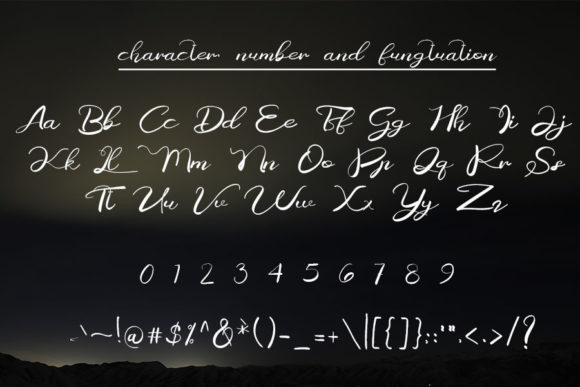 character number and fungtuation
Aa Bb Cc Dd Ee Ff Gg Hh Ii Jj
Kk Ll Mm Nn Oo Pp Qq Rr Ss
Tt Uu Vv Ww Xx Yy Zz
0 1 2 3 4 5 6 7 8 9
`~!@#$%^&*()-_=+\|[{]};:'",<.>/?